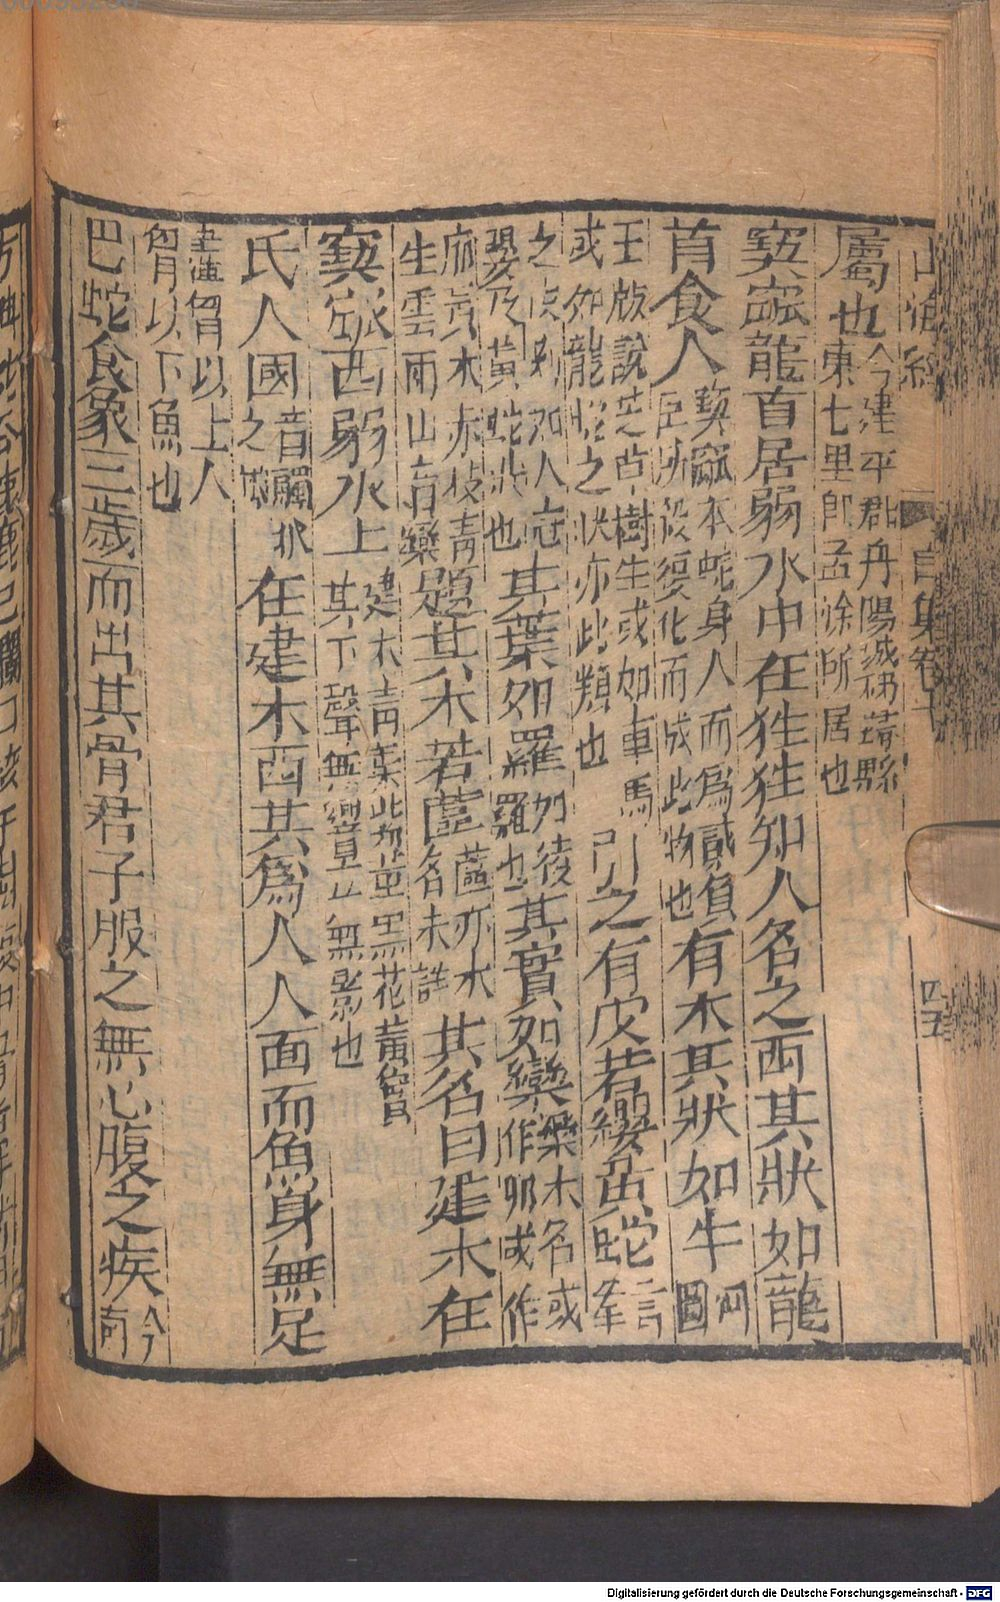 山海經 自集卷十 四五
屬也今建平郡丹陽城秭歸縣東七里即孟涂所居也
窫窳龍首居弱水中在狌狌知人名之西其狀如龍
首食人窫窳本蛇身人面為貳負臣所殺復化而成此物也有木其狀如牛河圖
王啟說芝草樹生或如車馬或如龍蛇之狀亦此類也引之有皮若纓黃蛇言牽
之皮剥如人冠纓及黃蛇狀也其葉如羅如綾羅也其實如欒欒木名或作卵或作
麻黃木赤枝青生雲雨山有欒題其木若蓲蓲亦木名未詳其名曰建木在
窫窳西弱水上建木青葉紫莖黑花黃實其下聲無響立無影也
氏人國音觸抵之抵在建木西其為人人面而魚身無足
盡胷以上人胷以下魚也
巴蛇食象三歲而出其骨君子服之無心腹之疾今南